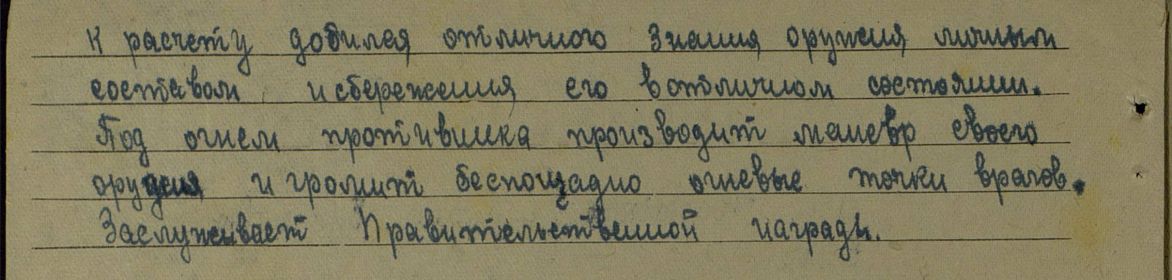 К расчету добился отличного знания оружия личным
составом и сбережения его в отличном состоянии.
Под огнем противника производит маневр своего
орудия и громит беспощадно огневые точки врагов.
Заслуживает Правительственной награды.